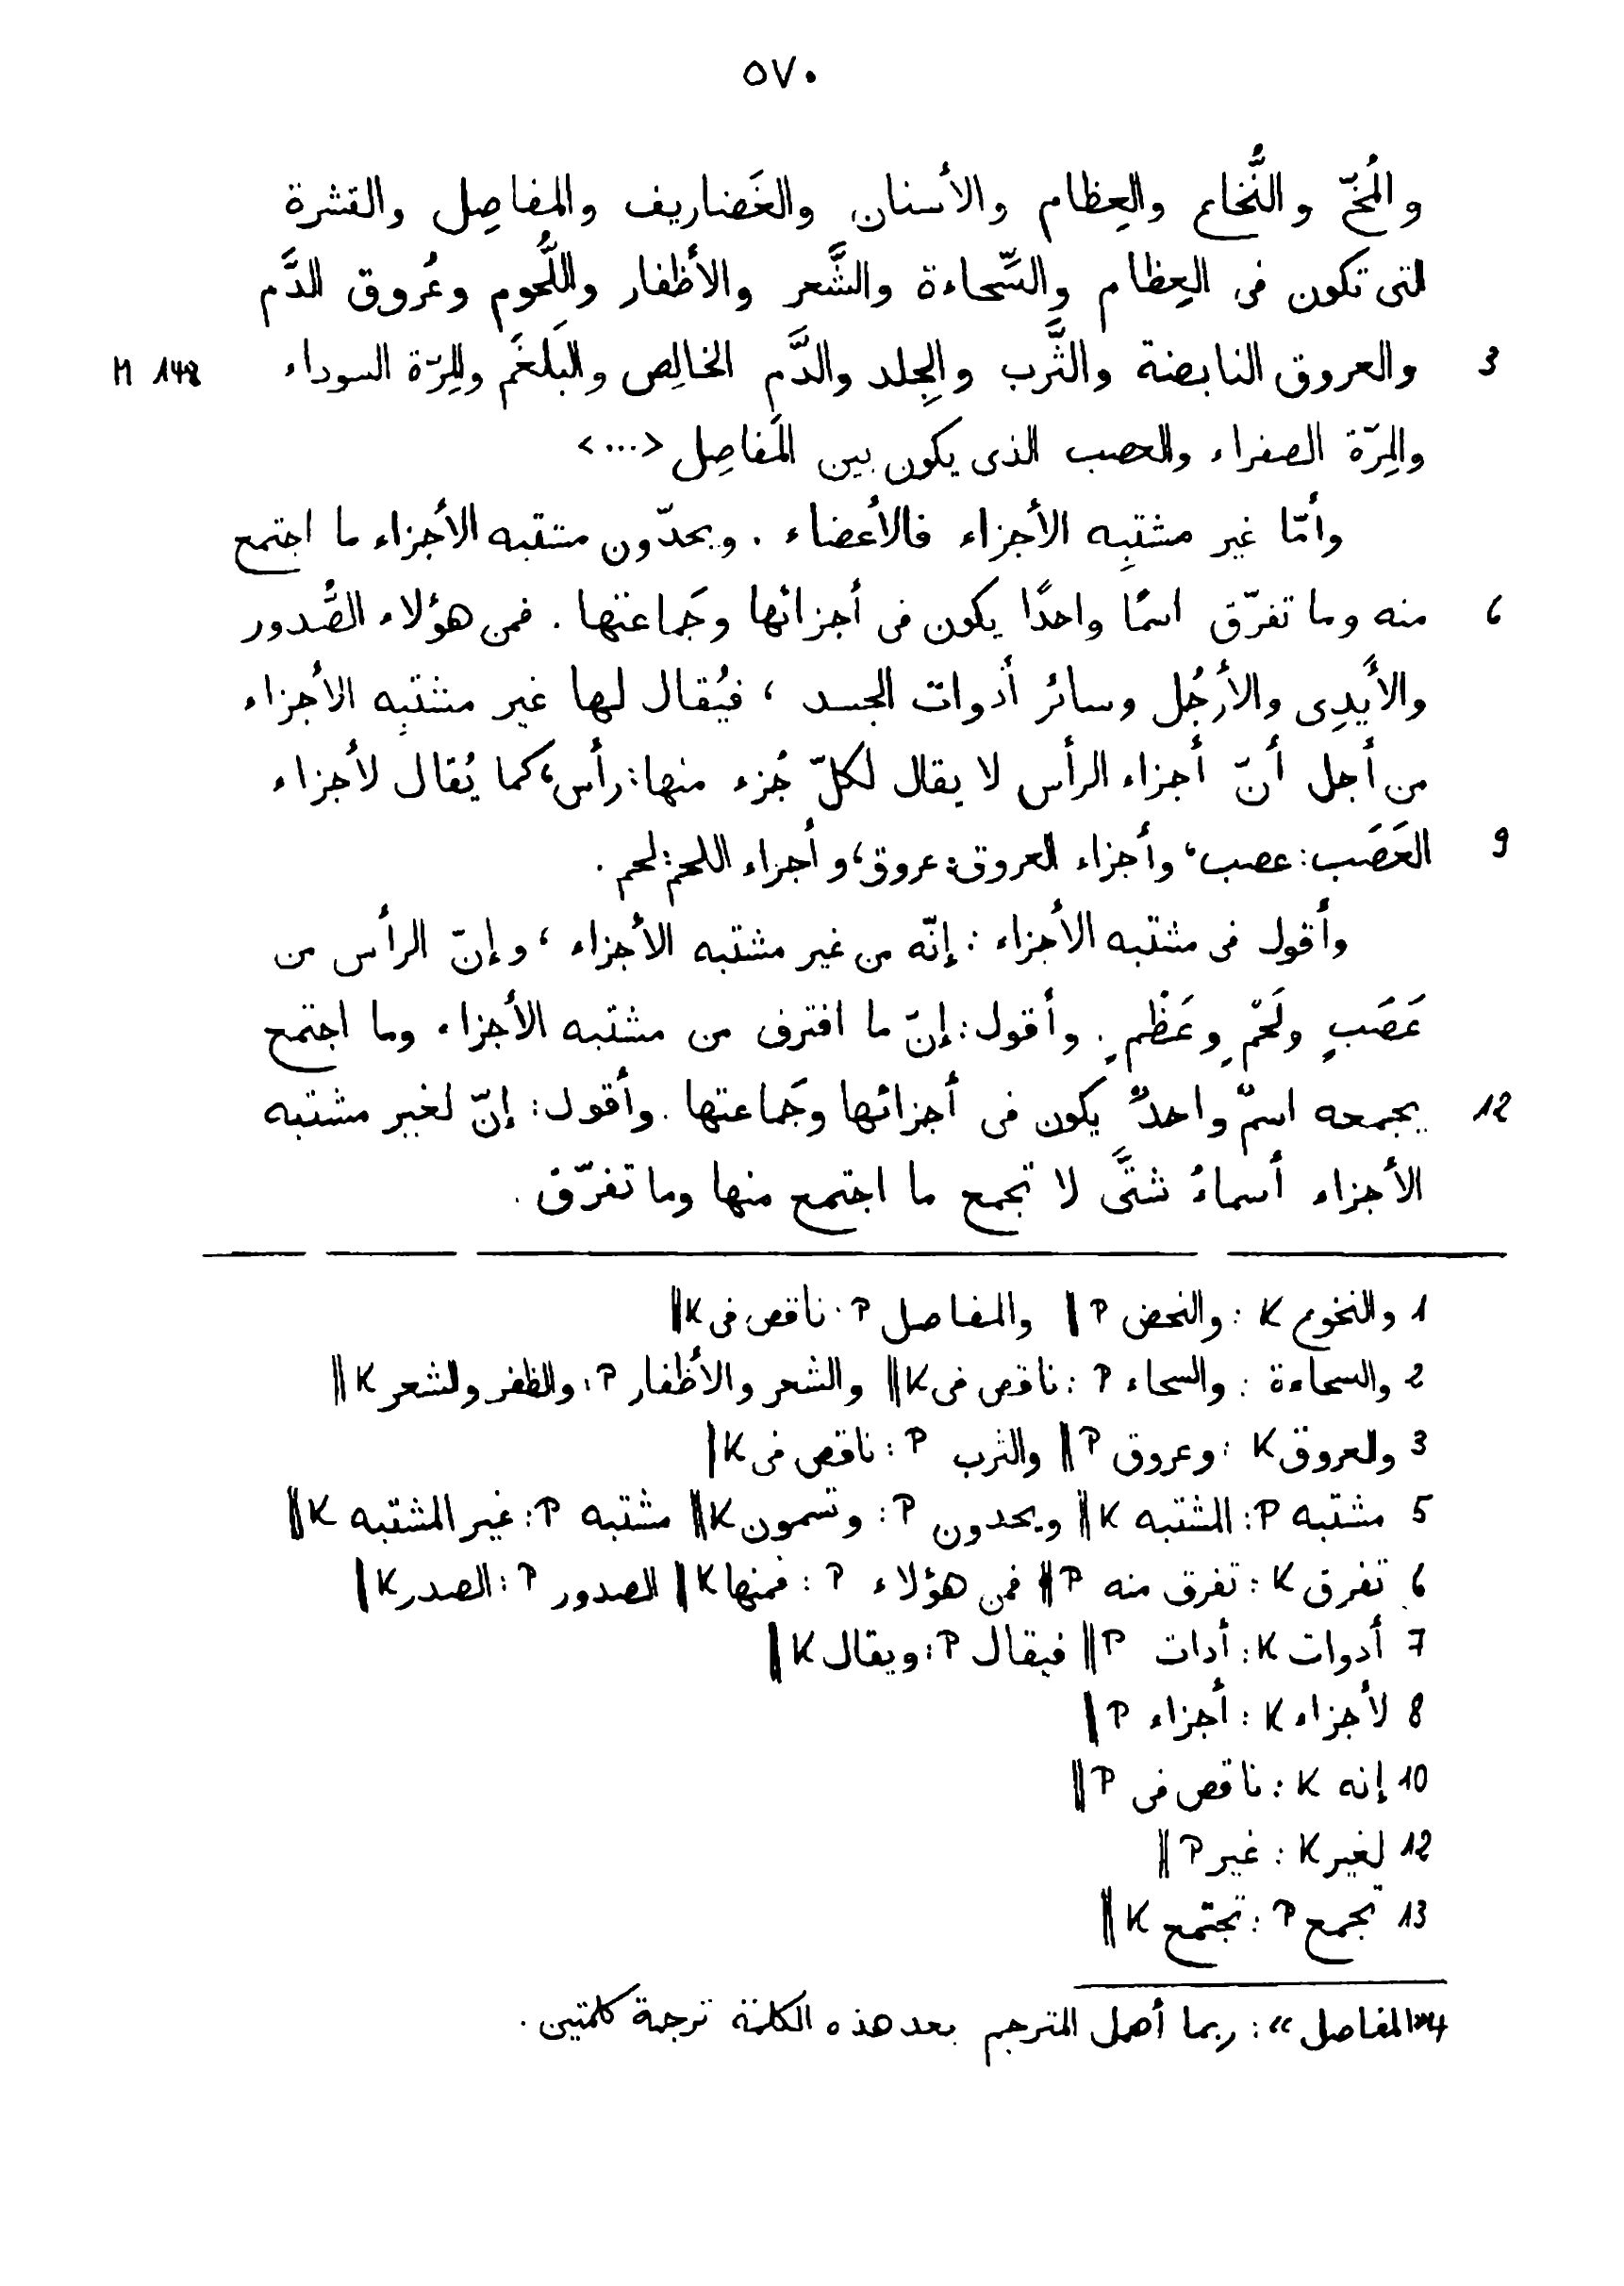 ٥٧٠
والمُخّ والنُّخاع والعِظام والأسنان والغَضاريف والمفاصِل والقشرة
التى تكون فى العِظام والسِّحاءة والشَّعر والأظفار واللُّحوم وعُروق الدَّم
3 والعروق النابضة والثَّرب والجِلد والدَّم الخالِص والبَلغَم والمِرّة السوداء M 148
والمِرّة الصفراء والعصب الذى يكون بين المَفاصِل <...>
وأمّا غير مشتبِه الأجزاء فالأعضاء . ويحدّون مشتبه الأجزاء ما اجتمع
6 منه وما تفرّق اسمًا واحدًا يكون فى أجزائها وجَماعتها . فمن هؤلاء الصُّدور
والأيدِى والأرجُل وسائر أدوات الجسد ، فيُقال لها غير مشتبِه الأجزاء
من أجل أنّ أجزاء الرأس لا يقال لكلّ جُزء منها : رأس ، كما يُقال لأجزاء
9 العَصَب : عصب ، وأجزاء العروق : عروق ، وأجزاء اللحم : لحم .
وأقول فى مشتبه الأجزاء : إنّه من غير مشتبه الأجزاء ، وإنّ الرأس من
عَصَبٍ ولَحْمٍ وعَظْمٍ . وأقول : إنّ ما افترق من مشتبه الأجزاء وما اجتمع
12 يجمعه اسمٌ واحدٌ يكون فى أجزائها وجَماعتها . وأقول : إنّ لغير مشتبه
الأجزاء أسماءُ شتَّى لا تجمع ما اجتمع منها وما تفرّق .
1 والنخوع K : والنحض P || والمفاصل P : ناقص فى K ||
2 والسحاءة : والسحاء P : ناقص فى K || والشعر والأظفار P : والظفر والشعر K ||
3 والعروق K : وعروق P || والثرب P : ناقص فى K |
5 مشتبه P : المشتبه K || ويحدون P : وتسمون K || مشتبه P : غير المشتبه K ||
6 تفرق K : تفرق منه P || فمن هؤلاء P : فمنها K || الصدور P : الصدر K |
7 أدوات K : أدات P || فيقال P : ويقال K ||
8 لأجزاء K : أجزاء P |
10 إنه K : ناقص فى P ||
12 لغير K : غير P ||
13 تجمع P : تجتمع K ||
4 «المفاصل» : ربما أهمل المترجم بعد هذه الكلمة ترجمة كلمتين .